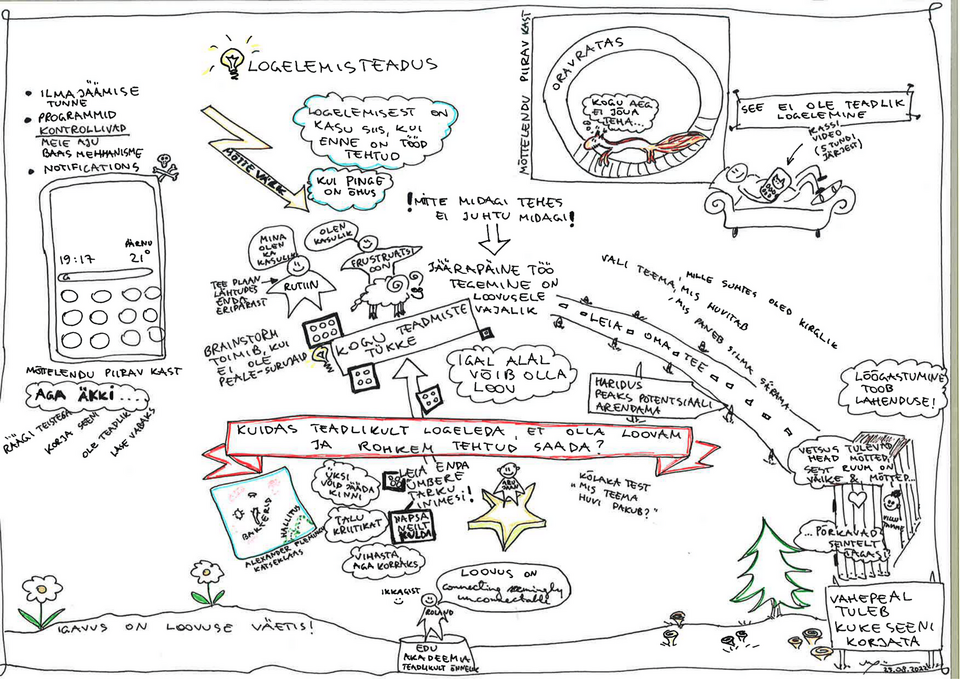 LOGELEMISTEADUS
• ILMAJÄÄMISE
TUNNE
• PROGRAMMID
KONTROLLIVAD
MEIE AJU
BAASMEHHANISME
• NOTIFICATIONS
PÄRNU
19:17 21°
G
MÕTTELENDU PIIRAV KAST
AGA ÄKKI....
RÄÄGI TEISTEGA
KORJA SEENI
OLE TEADLIK
LASE VABAKS
MÕTTEVÄLK
LOGELEMISEST ON
KASU SIIS, KUI
ENNE ON TÖÖD
TEHTUD
KUI PINGE
ON ÕHUS
MÕTTELENDU PIIRAV KAST
ORAVRATAS
KOGU AEG
EI JÕUA
TEHA...
SEE EI OLE TEADLIK
LOGELEMINE
KASSI
VIDEO
(5 TUNDI
JÄRJEST)
!MITTE MIDAGI TEHES
EI JUHTU MIDAGI!
MINA
OLEN
KA
KASULIK
OLEN
KASULIK
RUTIIN
FRUSTRATSI
OON
TEE PLAAN
LÄHTUDES
ENDA
ERIPÄRAST
JÄÄRAPÄINE TÖÖ
TEGEMINE ON
LOOVUSELE
VAJALIK
BRAINSTORM
TOIMIB, KUI
EI OLE
PEALE-SURUJAID
KOGU TEADMISTE
TÜKKE
IGAL ALAL
VÕIB OLLA
LOOV
VALI TEEMA, MILLE SUHTES OLED KIRGLIK
, MIS HUVITAB
, MIS PANEB SILMA SÄRAMA
LEIA OMA TEE
HARIDUS
PEAKS POTENTSIAALI
ARENDAMA
LÕÕGASTUMINE
TOOB
LAHENDUSE!
KUIDAS TEADLIKULT LOGELEDA, ET OLLA LOOVAM
JA ROHKEM TEHTUD SAADA?
VETSUS TULEVAD
HEAD MÕTTED,
SEST RUUM ON
VÄIKE & MÕTTED...
VILLU
TAMME
...PÕRKAVAD
SEINTELT
TAGASI
BAKTERID
HALLITUS
KATSEKLAAS
ÜKSI
VÕID JÄÄDA
KINNI
TALU
KRIITIKAT
VIHASTA
AGA KORRAKS
LEIA ENDA
ÜMBERE
TARKU
INIMESI!
NAPSA
NEILT
KULDA
KÕLAKA TEST
"MIS TEEMA
HUVI PAKUB?"
IKKAGIST
LOOVUS ON
connecting seemingly
unconnectable
ROLAND
EDU
AKADEEMIA
TEADLIKULT ÕNNELIK
IGAVUS ON LOOVUSE VÄETIS!
VAHEPEAL
TULEB
KUKESEENI
KORJATA
25.08.2022